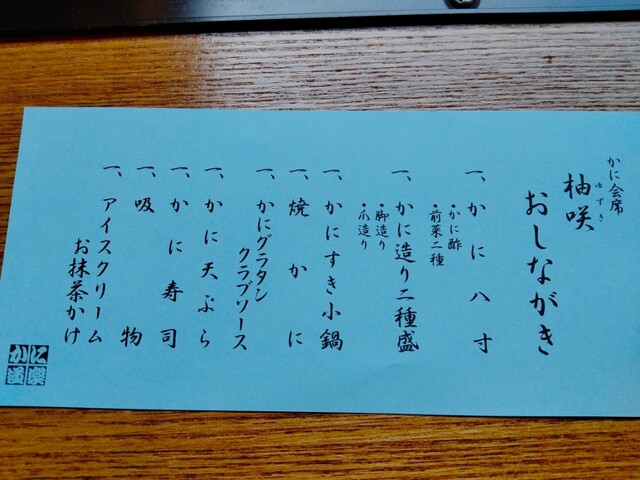 かに会席
柚咲
ゆずき
おしながき
一、かに八寸
・かに酢
・前菜二種
一、かに造り二種盛
・脚造り
・爪造り
一、かにすき小鍋
一、焼かに
一、かにグラタン
クラブソース
一、かに天ぷら
一、かに寿司
一、吸物
一、アイスクリーム
お抹茶かけ
かに
道楽